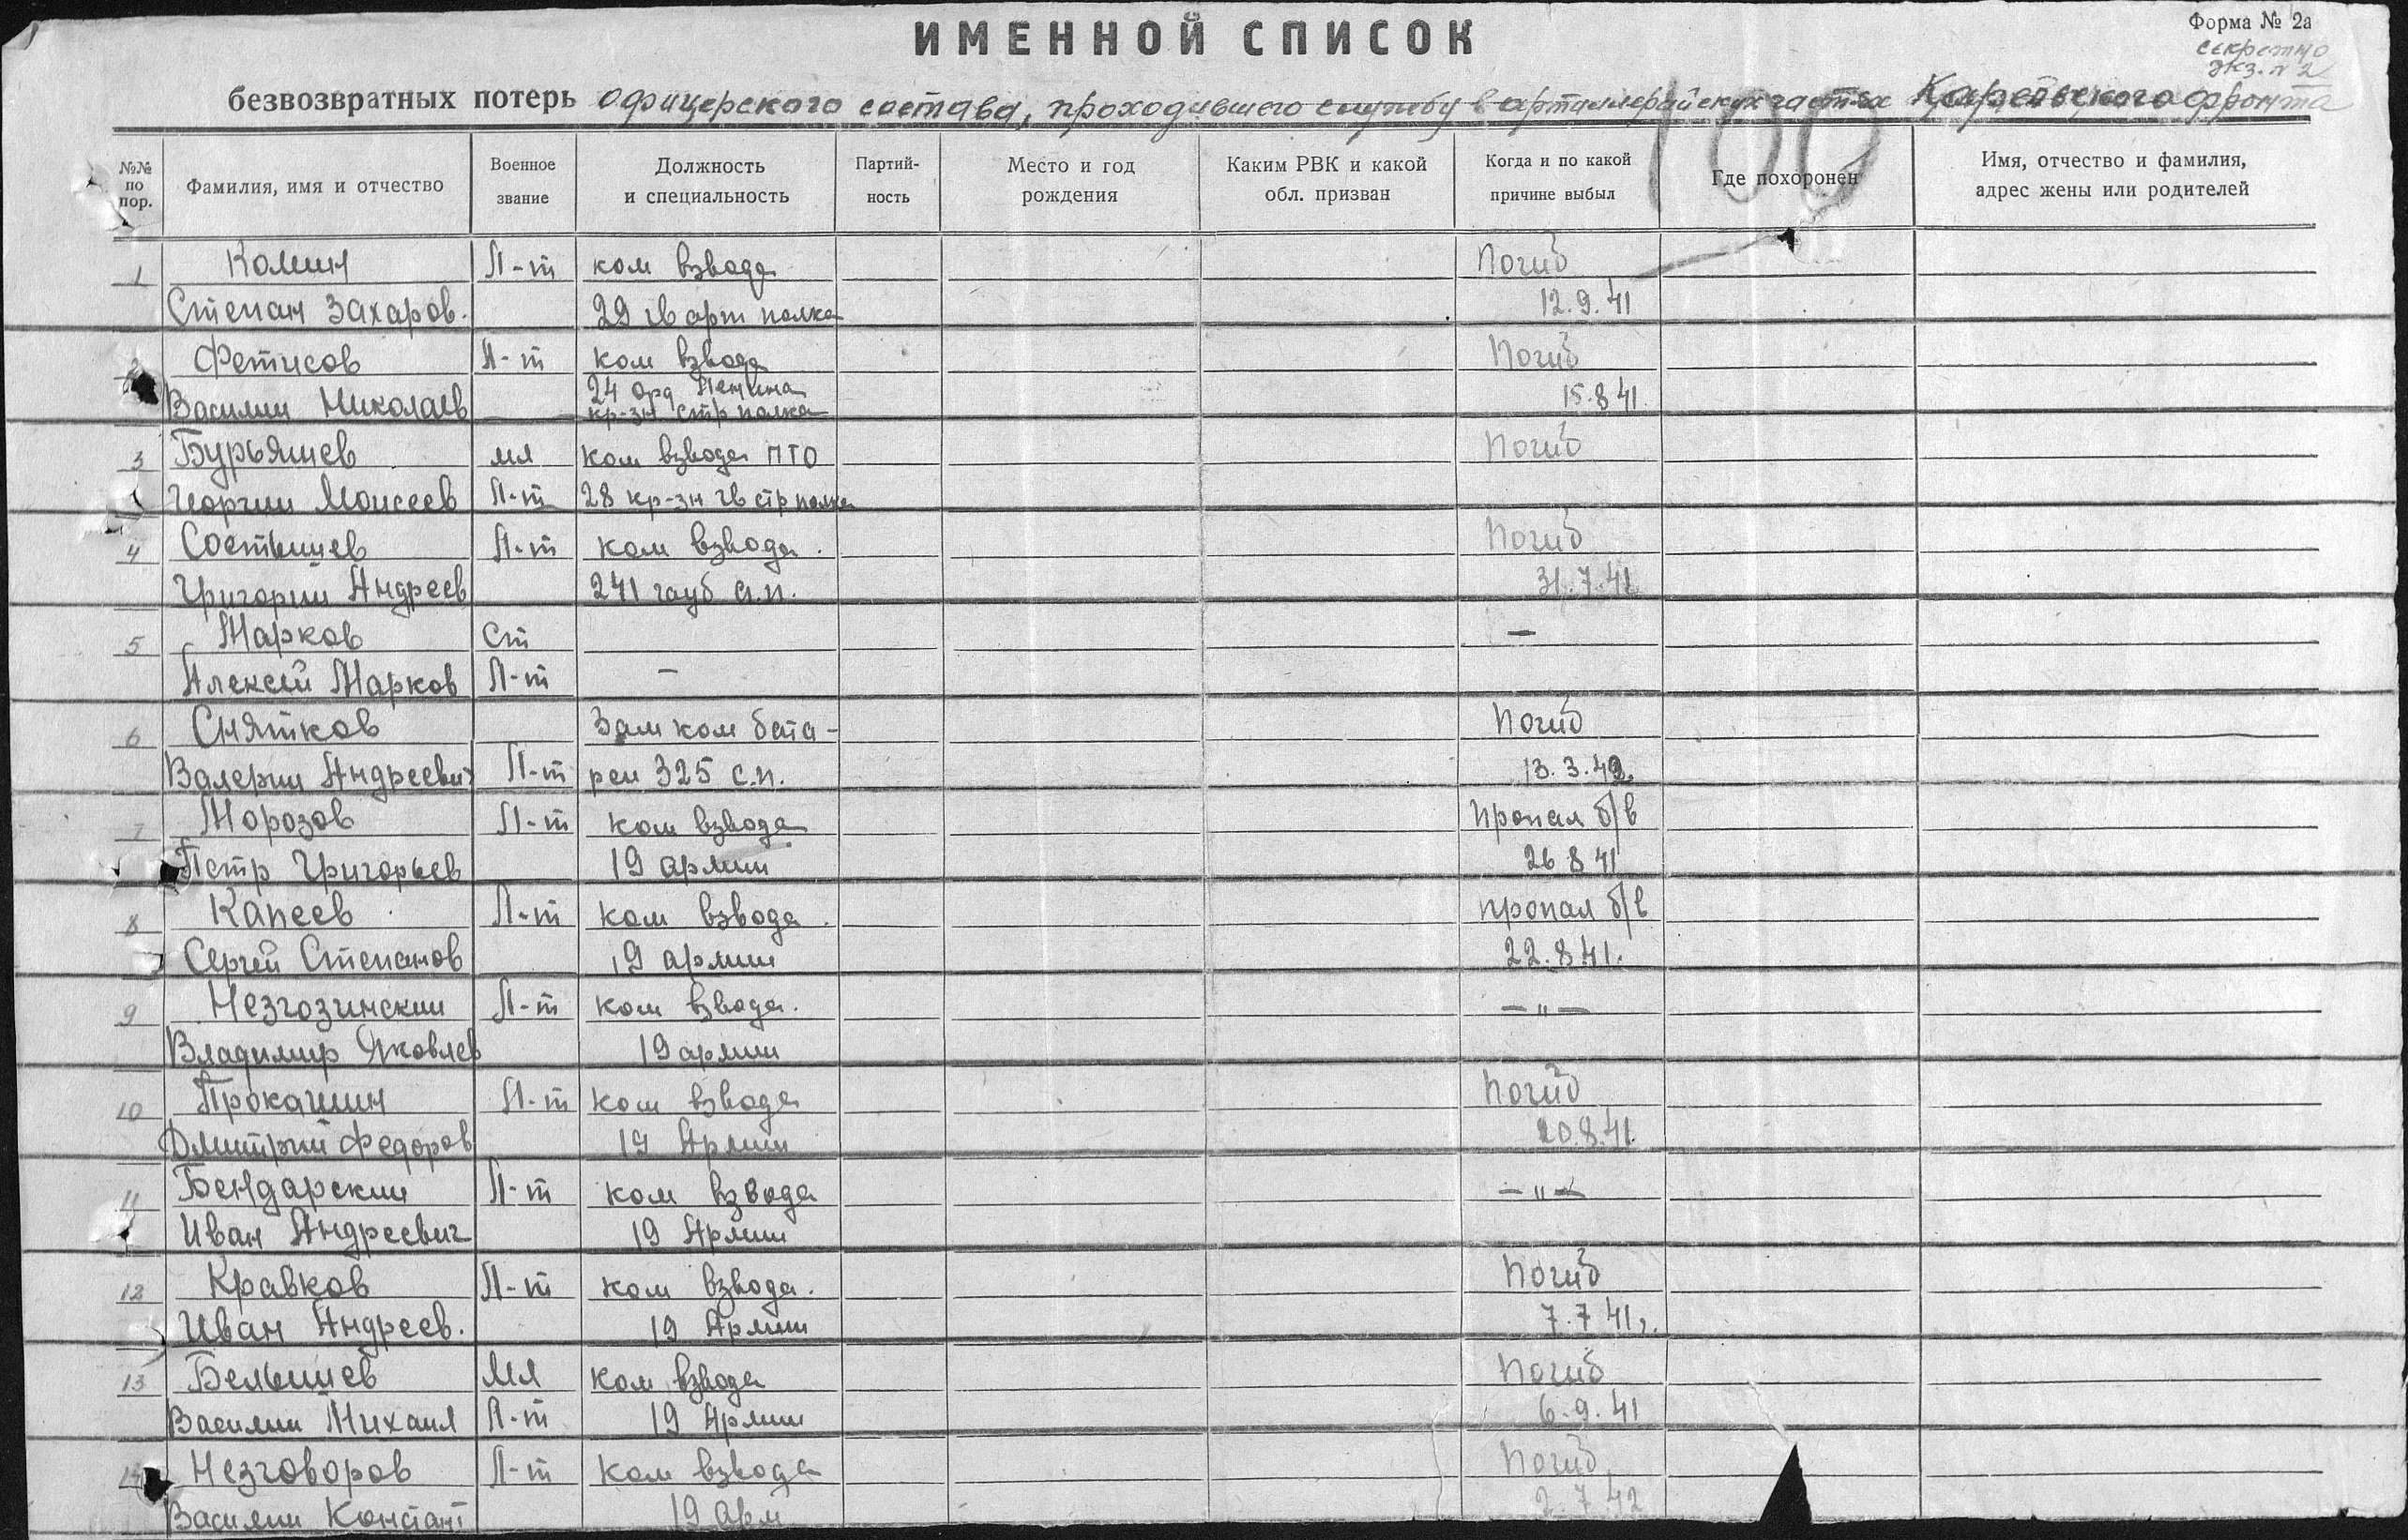 ИМЕННОЙ СПИСОК
Форма № 2а
секретно
экз. № 2
безвозвратных потерь офицерского состава, проходившего службу в артиллерийских частях Карельского фронта
100
№№ по пор.
Фамилия, имя и отчество
Военное звание
Должность и специальность
Партий-ность
Место и год рождения
Каким РВК и какой обл. призван
Когда и по какой причине выбыл
Где похоронен
Имя, отчество и фамилия, адрес жены или родителей
1 Комин Л-т ком взвода Погиб
Степан Захаров. 29 гв арт полка 12.9.41
2 Фетисов Л-т ком взвода Погиб
24 орд Ленина
Василии Николаев кр-зн стр полка 15.8 41.
3 Бурьяшев мл ком взвода ПТО Погиб
Георгии Моисеев Л-т 28 кр-зн гв стр полка
4 Состышев Л-т ком взвода. Погиб
Григории Андреев 241 гауб а.п. 31.7.41
5 Марков Ст —
Алексей Марков Л-т —
6 Снятков Зам ком бата- Погиб
Валерии Андреевич Л-т реи 325 с.п. 13.3.42.
7 Морозов Л-т ком взвода пропал б/в
Петр Григорьев 19 армии 26 8 41
8 Капеев Л-т ком взвода. пропал б/в
Сергей Степанов 19 армии 22.8 41.
9 Незгозинскии Л-т ком взвода. —"—
Владимир Яковлев 19 армии
10 Прокашин Л-т ком взвода Погиб
Дмитрии Федоров 19 Армии 20.8.41.
11 Бендарскии Л-т ком взвода —"—
Иван Андреевич 19 Армии
12 Кравков Л-т ком взвода. Погиб
Иван Андреев. 19 Армии 7.7 41.
13 Белышев Мл ком взвода Погиб
Василии Михаил Л-т 19 Армии 6.9.41
14 Незговоров Л-т ком взвода Погиб
Василии Констант 19 арм 2.7.42